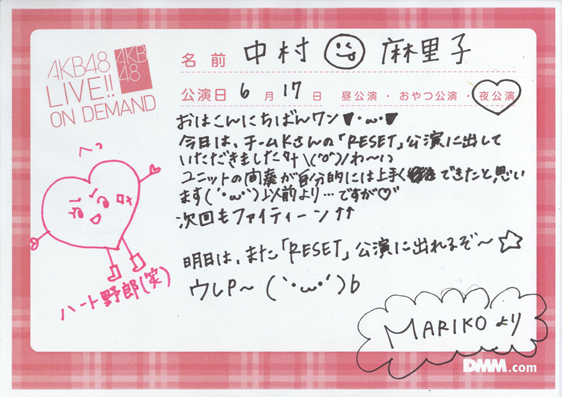 AKB48
LIVE!!
ON DEMAND
AKB
48
名前 中村 麻里子
公演日 6月17日 昼公演・おやつ公演・夜公演
おはこんにちばんワン♥・ω・♥
今日は、チームKさんの「RESET」公演に出して
いただきました \(^o^)/わーい
ユニットの間奏が自分的には上手くできたと思い
ます(`・ω・´)以前より…ですが♡
次回もファイティーン↑↑
明日は、また「RESET」公演に出れるぞ〜☆
ウレP〜 (`・ω・´)b
へっ
ハート野郎(笑)
MARIKOより
DMM.com